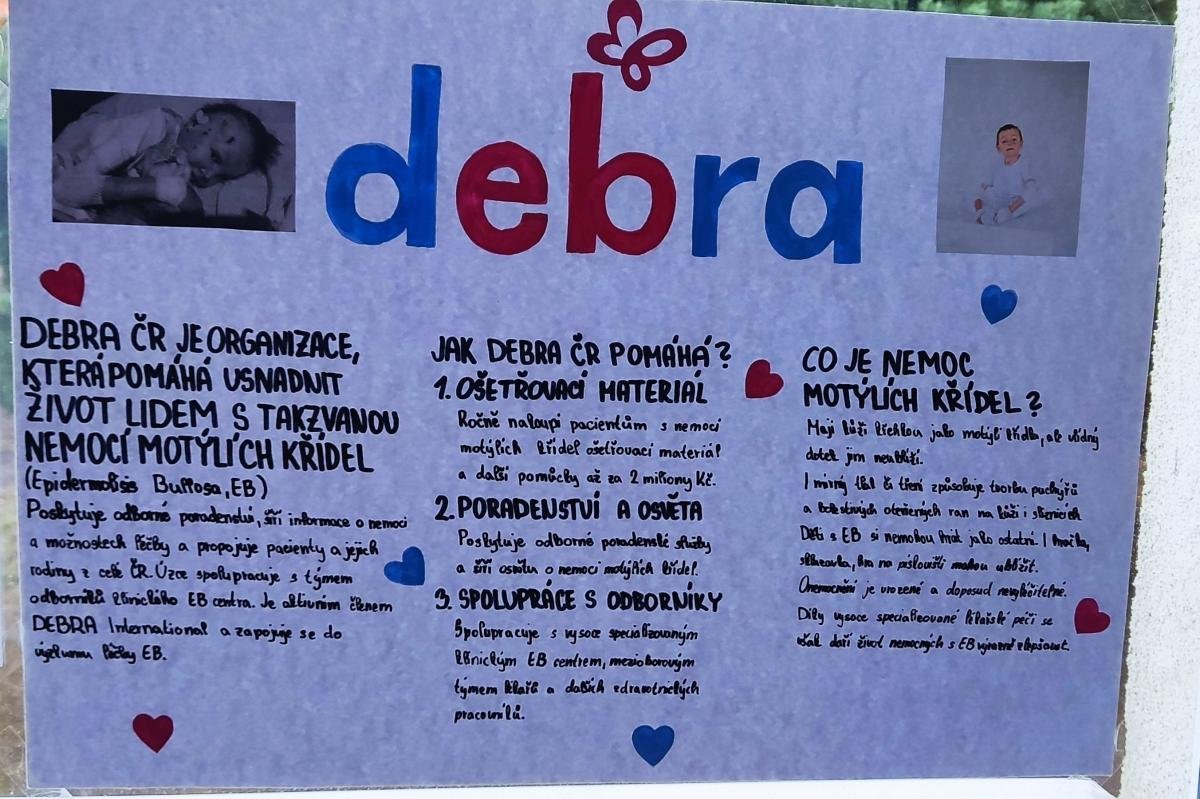 debra
DEBRA ČR JE ORGANIZACE,
KTERÁ POMÁHÁ USNADNIT
ŽIVOT LIDEM S TAKZVANOU
NEMOCÍ MOTÝLÍCH KŘÍDEL
(Epidermolisis Bullosa, EB)
Poskytuje odborné poradenství, šíří informace o nemoci
a možnostech léčby a propojuje pacienty a jejich
rodiny z celé ČR. Úzce spolupracuje s týmem
odborníků klinického EB centra. Je aktivním členem
DEBRA International a zapojuje se do
výzkumu léčby EB.
JAK DEBRA ČR POMÁHÁ?
1. OŠETŘOVACÍ MATERIÁL
Ročně nakoupí pacientům s nemocí
motýlích křídel ošetřovací materiál
a další pomůcky až za 2 miliony Kč.
2. PORADENSTVÍ A OSVĚTA
Poskytuje odborné poradenské služby
a šíří osvětu o nemoci motýlích křídel.
3. SPOLUPRÁCE S ODBORNÍKY
Spolupracuje s vysoce specializovaným
klinickým EB centrem, mezioborovým
týmem lékařů a dalších zdravotnických
pracovníků.
CO JE NEMOC
MOTÝLÍCH KŘÍDEL?
Mají kůži křehkou jako motýlí křídla, ale vlídný
dotek jim neublíží.
I mírný tlak či tření způsobuje tvorbu puchýřů
a bolestivých otevřených ran na kůži i sliznicích
Děti s EB si nemohou hrát jako ostatní. I hračka,
skluzavka, hra na pískovišti mohou ublížit.
Onemocnění je vrozené a doposud nevyléčitelné.
Díky vysoce specializované lékařské péči se
však daří život nemocných s EB výrazně zlepšovat.